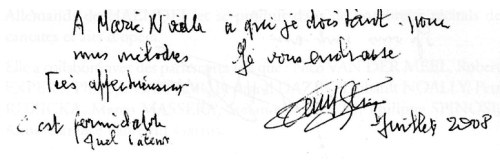 A Marie Noëlle à qui je dois tant. pour
mes mélodies Je vous embrasse
Très affectueusement
c'est formidable
quel talent
Juillet 2008